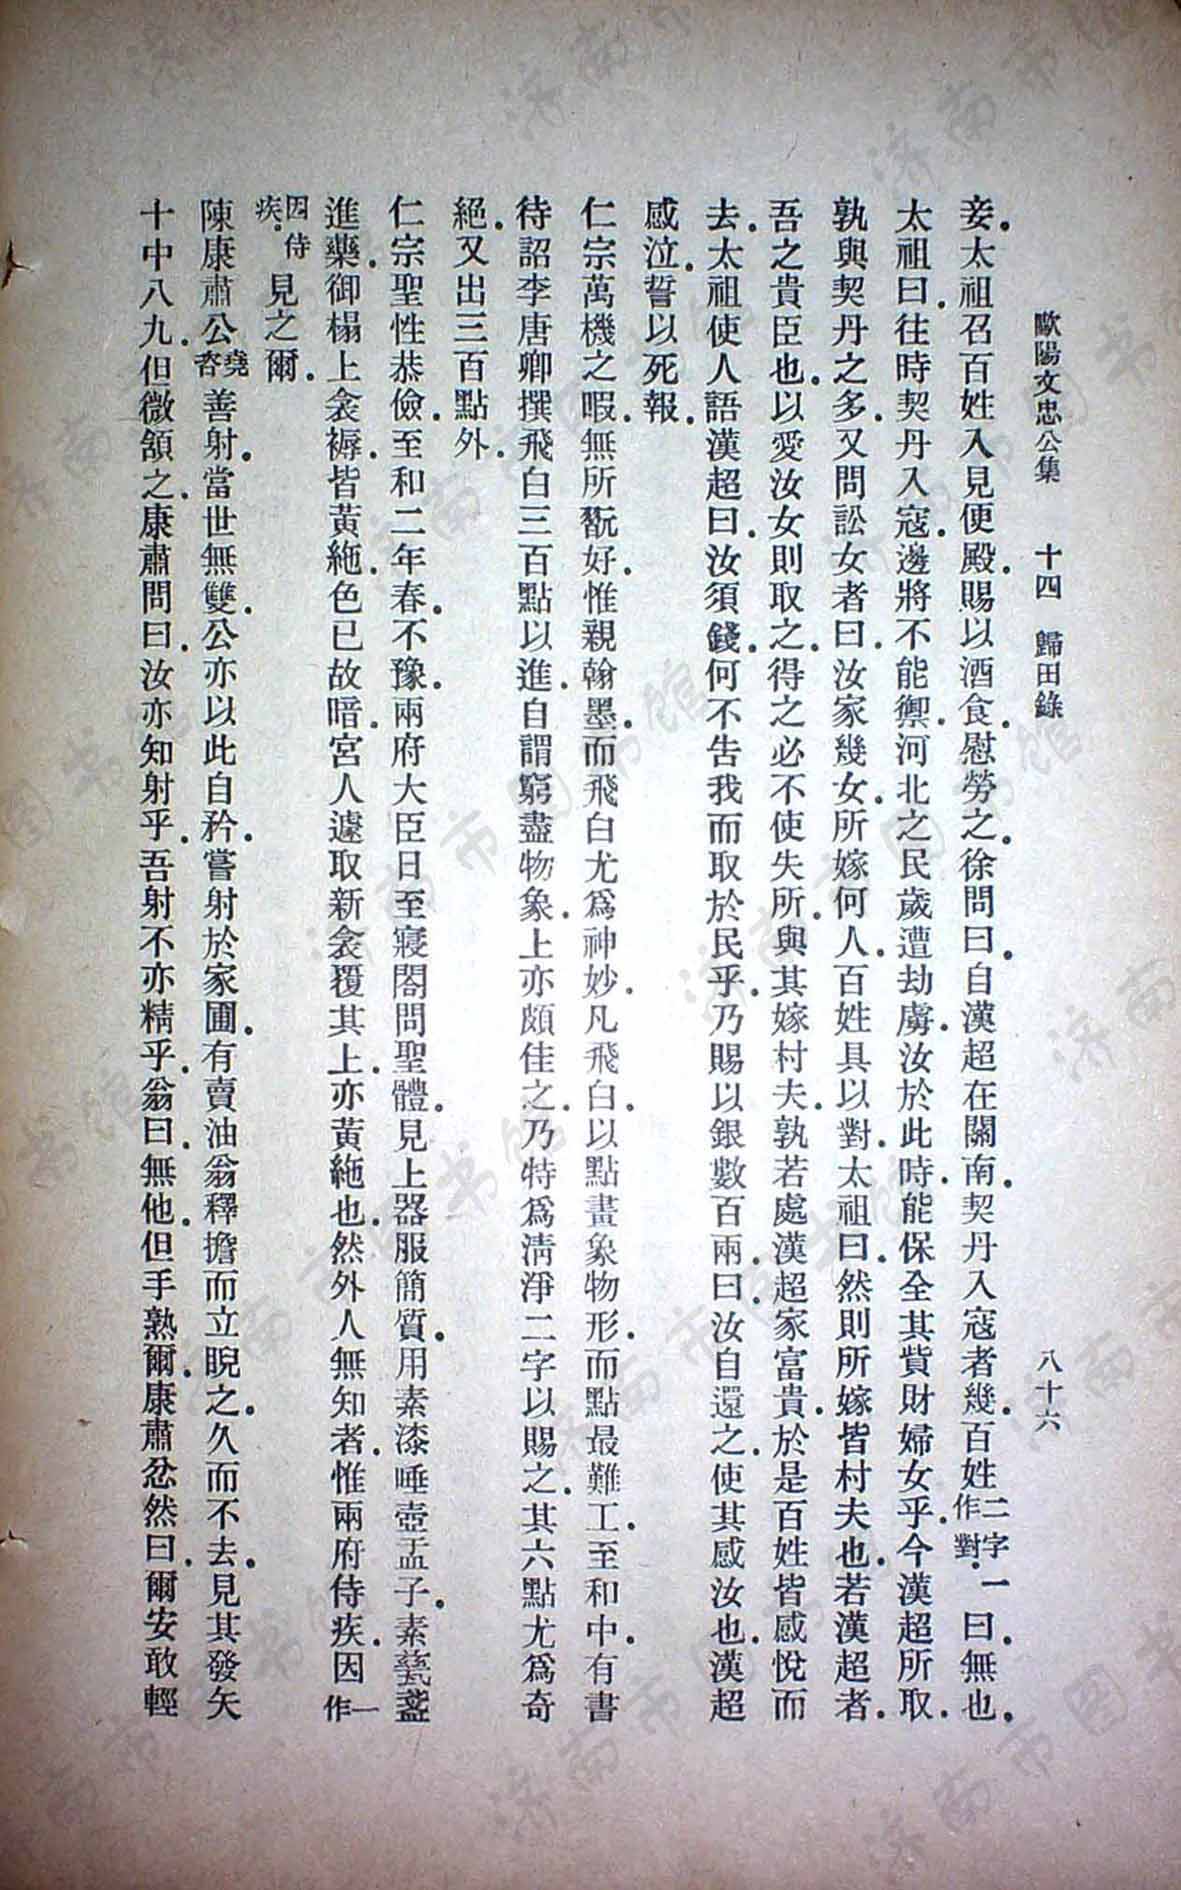 歐陽文忠公集　十四　歸田錄　八十六
妾．太祖召百姓入見便殿．賜以酒食．慰勞之．徐問曰．自漢超在關南．契丹入寇者幾．百姓二字一作對．曰．無也．
太祖曰．往時契丹入寇．邊將不能禦．河北之民歲遭劫虜．汝於此時．能保全其貲財婦女乎．今漢超所取．
孰與契丹之多．又問訟女者曰．汝家幾女．所嫁何人．百姓具以對．太祖曰．然則所嫁皆村夫也．若漢超者．
吾之貴臣也．以愛汝女則取之．得之必不使失所．與其嫁村夫．孰若處漢超家富貴．於是百姓皆感悅而
去．太祖使人語漢超曰．汝須錢．何不告我而取於民乎．乃賜以銀數百兩．曰．汝自還之．使其感汝也．漢超
感泣．誓以死報．
仁宗萬機之暇．無所翫好．惟親翰墨．而飛白尤爲神妙．凡飛白．以點畫象物形．而點最難工．至和中．有書
待詔李唐卿撰飛白三百點以進．自謂窮盡物象．上亦頗佳之．乃特爲清淨二字以賜之．其六點尤爲奇
絕．又出三百點外．
仁宗聖性恭儉．至和二年春．不豫．兩府大臣日至寢閤問聖體．見上器服簡質．用素漆唾壺盂子．素甆盞
進藥．御榻上衾褥．皆黃絁．色已故暗．宮人遽取新衾覆其上．亦黃絁也．然外人無知者．惟兩府侍疾．因一作
因侍疾．見之爾．
陳康肅公堯咨善射．當世無雙．公亦以此自矜．嘗射於家圃．有賣油翁釋擔而立睨之．久而不去．見其發矢
十中八九．但微頷之．康肅問曰．汝亦知射乎．吾射不亦精乎．翁曰．無他．但手熟爾．康肅忿然曰．爾安敢輕